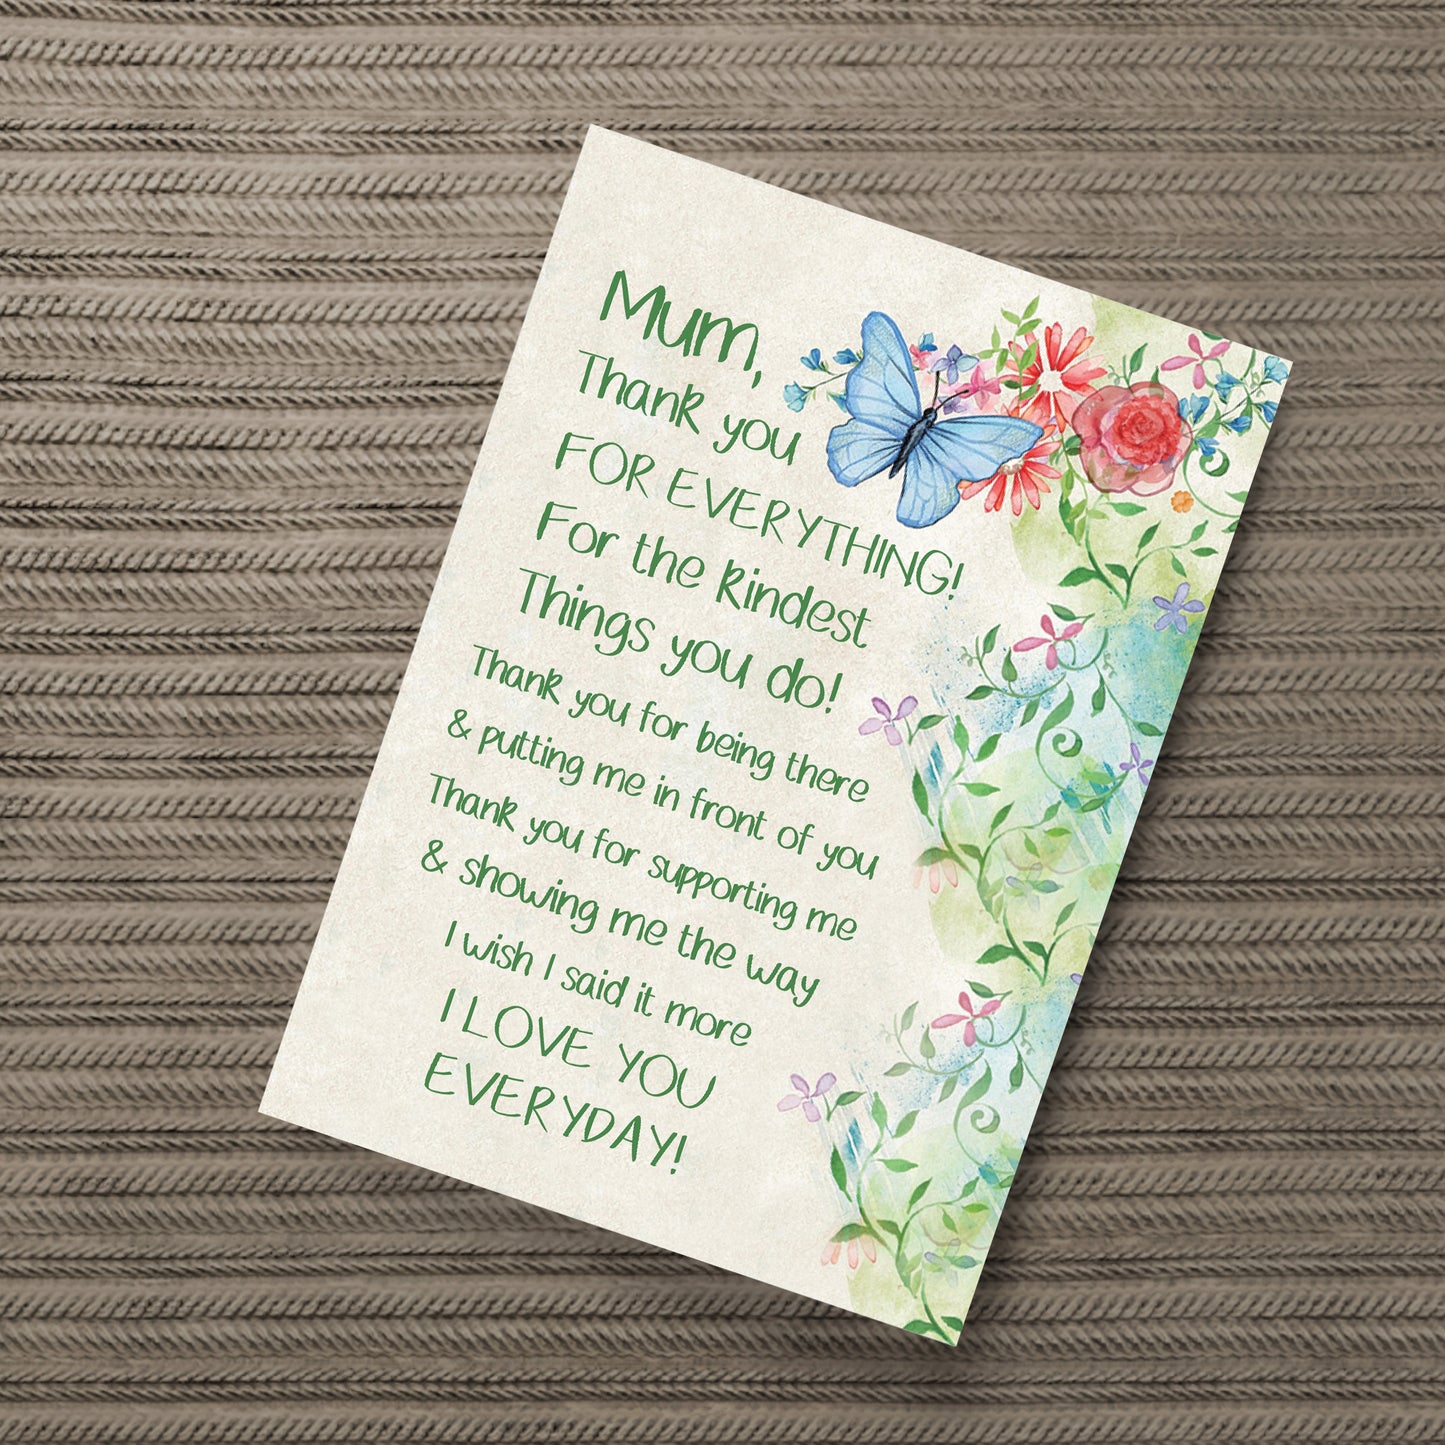 Mum,
Thank you
FOR EVERYTHING!
For the kindest
Things you do!
Thank you for being there
& putting me in front of you
Thank you for supporting me
& showing me the way
I wish I said it more
I LOVE YOU
EVERYDAY!